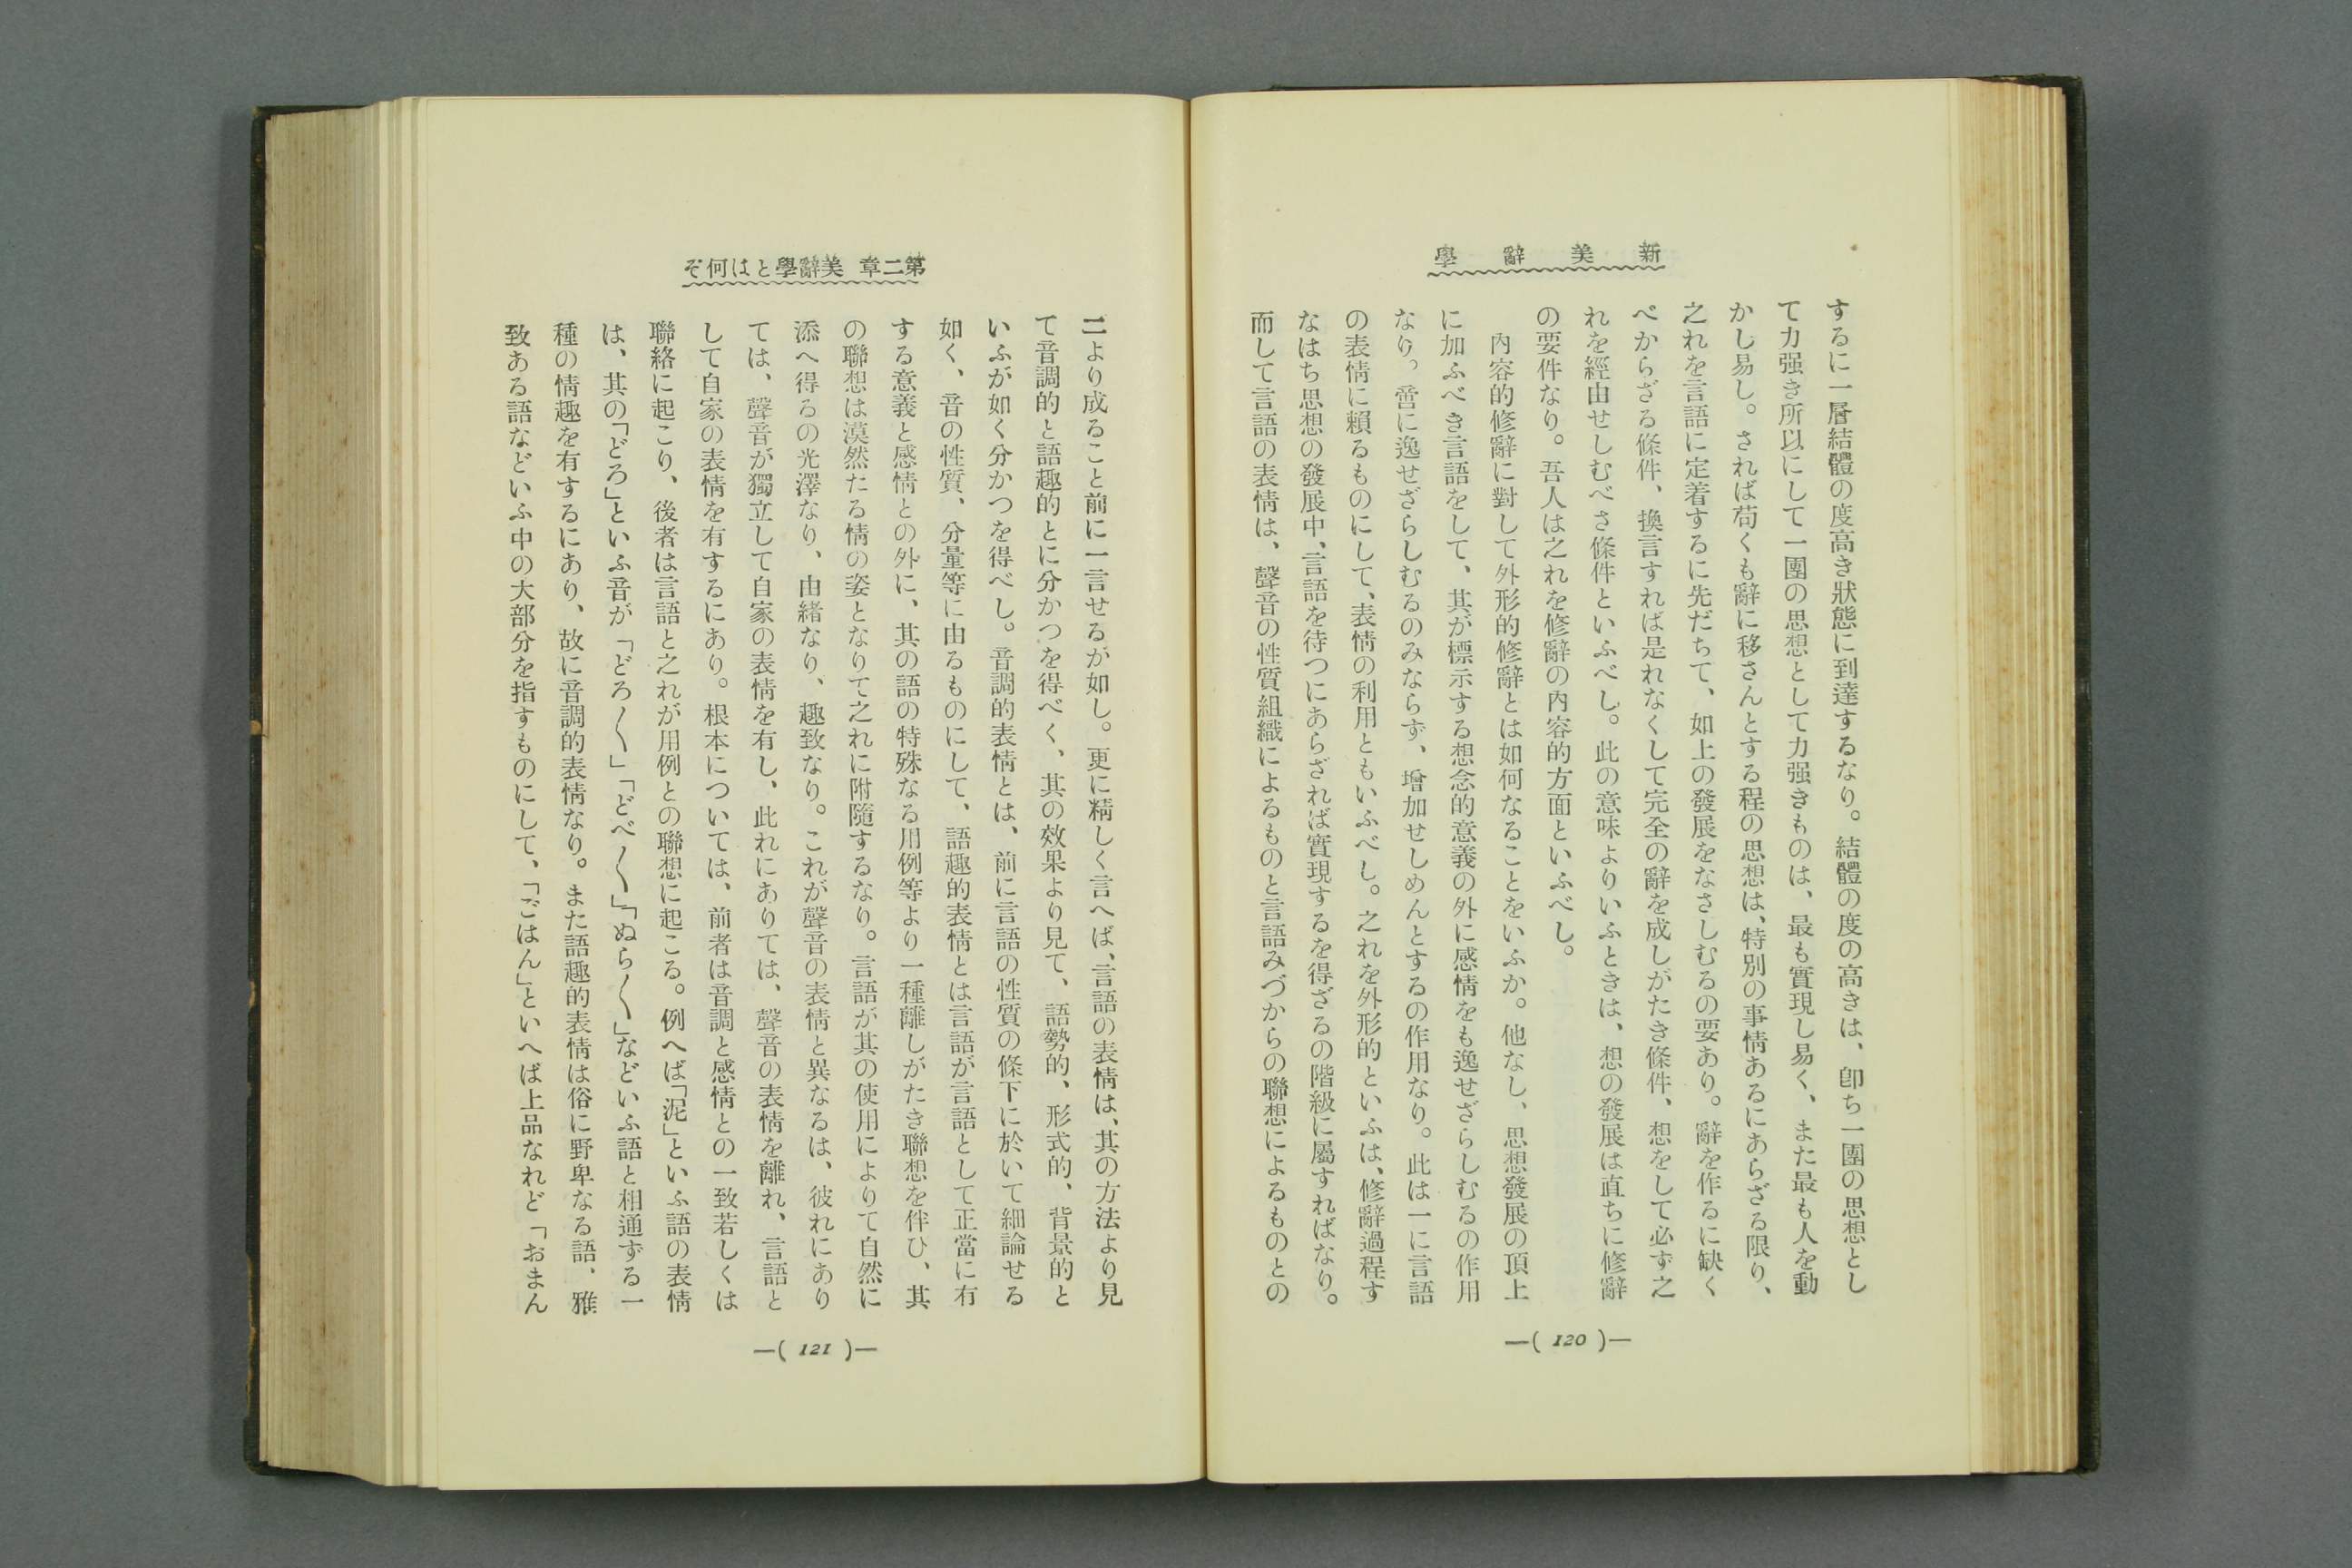 新美辭學
するに一層結體の度高き狀態に到達するなり。結體の度の高きは、卽ち一團の思想とし
て力强き所以にして一團の思想として力强きものは、最も實現し易く、また最も人を動
かし易し。されば苟くも辭に移さんとする程の思想は、特別の事情あるにあらざる限り、
之れを言語に定着するに先だちて、如上の發展をなさしむるの要あり。辭を作るに缺く
べからざる條件、換言すれば是れなくして完全の辭を成しがたき條件、想をして必ず之
れを經由せしむべき條件といふべし。此の意味よりいふときは、想の發展は直ちに修辭
の要件なり。吾人は之れを修辭の內容的方面といふべし。
內容的修辭に對して外形的修辭とは如何なることをいふか。他なし、思想發展の頂上
に加ふべき言語をして、其が標示する想念的意義の外に感情をも逸せざらしむるの作用
なり。啻に逸せざらしむるのみならず、增加せしめんとするの作用なり。此は一に言語
の表情に賴るものにして、表情の利用ともいふべし。之れを外形的といふは、修辭過程す
なはち思想の發展中、言語を待つにあらざれば實現するを得ざるの階級に屬すればなり。
而して言語の表情は、聲音の性質組織によるものと言語みづからの聯想によるものとの
—( 120 )—
第二章 美辭學とは何ぞ
二より成ること前に一言せるが如し。更に精しく言へば、言語の表情は、其の方法より見
て音調的と語趣的とに分かつを得べく、其の效果より見て、語勢的、形式的、背景的と
いふが如く分かつを得べし。音調的表情とは、前に言語の性質の條下に於いて細論せる
如く、音の性質、分量等に由るものにして、語趣的表情とは言語が言語として正當に有
する意義と感情との外に、其の語の特殊なる用例等より一種離しがたき聯想を伴ひ、其
の聯想は漠然たる情の姿となりて之れに附隨するなり。言語が其の使用によりて自然に
添へ得るの光澤なり、由緒なり、趣致なり。これが聲音の表情と異なるは、彼れにあり
ては、聲音が獨立して自家の表情を有し、此れにありては、聲音の表情を離れ、言語と
して自家の表情を有するにあり。根本については、前者は音調と感情との一致若しくは
聯絡に起こり、後者は言語と之れが用例との聯想に起こる。例へば「泥」といふ語の表情
は、其の「どろ」といふ音が「どろ〱」「どべ〱」「ぬら〱」などいふ語と相通ずる一
種の情趣を有するにあり、故に音調的表情なり。また語趣的表情は俗に野卑なる語、雅
致ある語などいふ中の大部分を指すものにして、「ごはん」といへば上品なれど「おまん
—( 121 )—